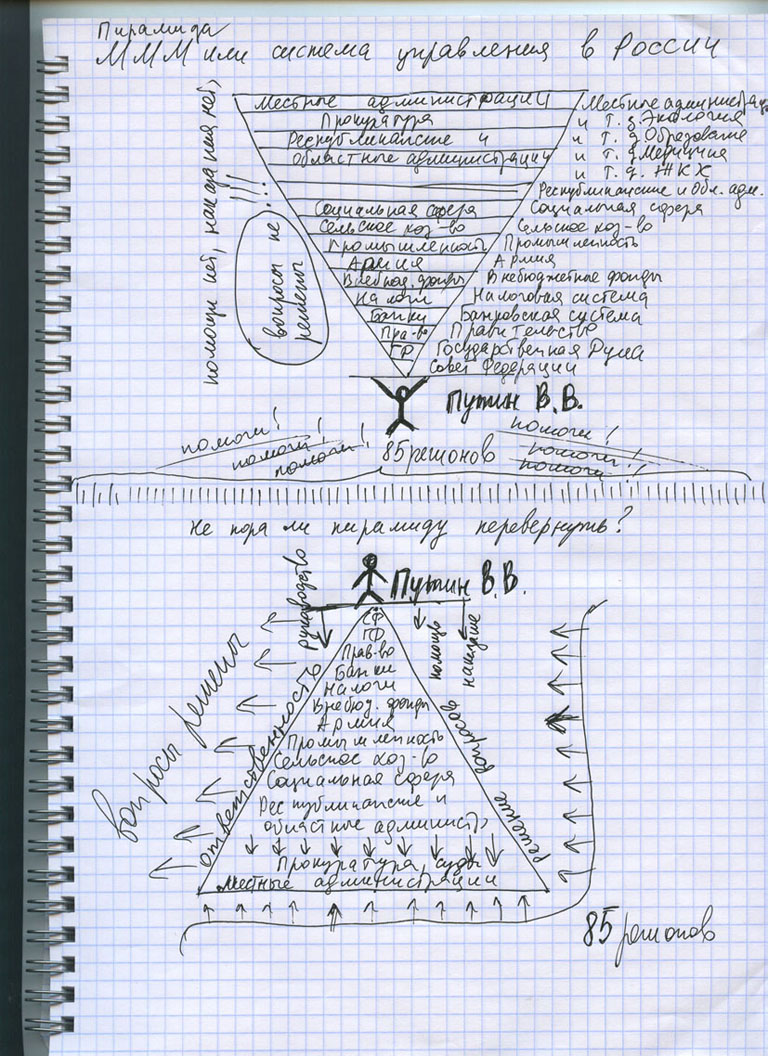 Пирамида
МММ или система управления в России
помощи нет, наказания нет, !!!
вопросы не решены
Местные администрации
Прокуратура
Республиканские и
областные администрации
Социальная сфера
Сельское хоз-во
Промышленность
Армия
Внебюд. фонды
Налоги
Банки
Пра-во
ГР
Местные администрац
и т. д. Экология
и т. д. Образование
и т. д. Медицина
и т. д. ЖКХ
Республиканские и обл. адм.
Социальная сфера
Сельское хоз-во
Промышленность
Армия
Внебюджетные фонды
Налоговая система
Банковская система
Правительство
Государственная Дума
Совет Федерации
Путин В.В.
помоги!
помоги!
помоги!
85 регионов
помоги!
помоги!
помоги!
Не пора ли пирамиду перевернуть?
Путин В.В.
руководство
помощь
наказание
СФ
ГД
Прав-во
Банки
Налоги
Внебюд. фонды
Армия
Промышленность
Сельское хоз-во
Социальная сфера
Республиканские и
областные админист.
Прокуратура, суды
Местные администрации
вопросы решены
ответственность
решение вопросов
85 регионов